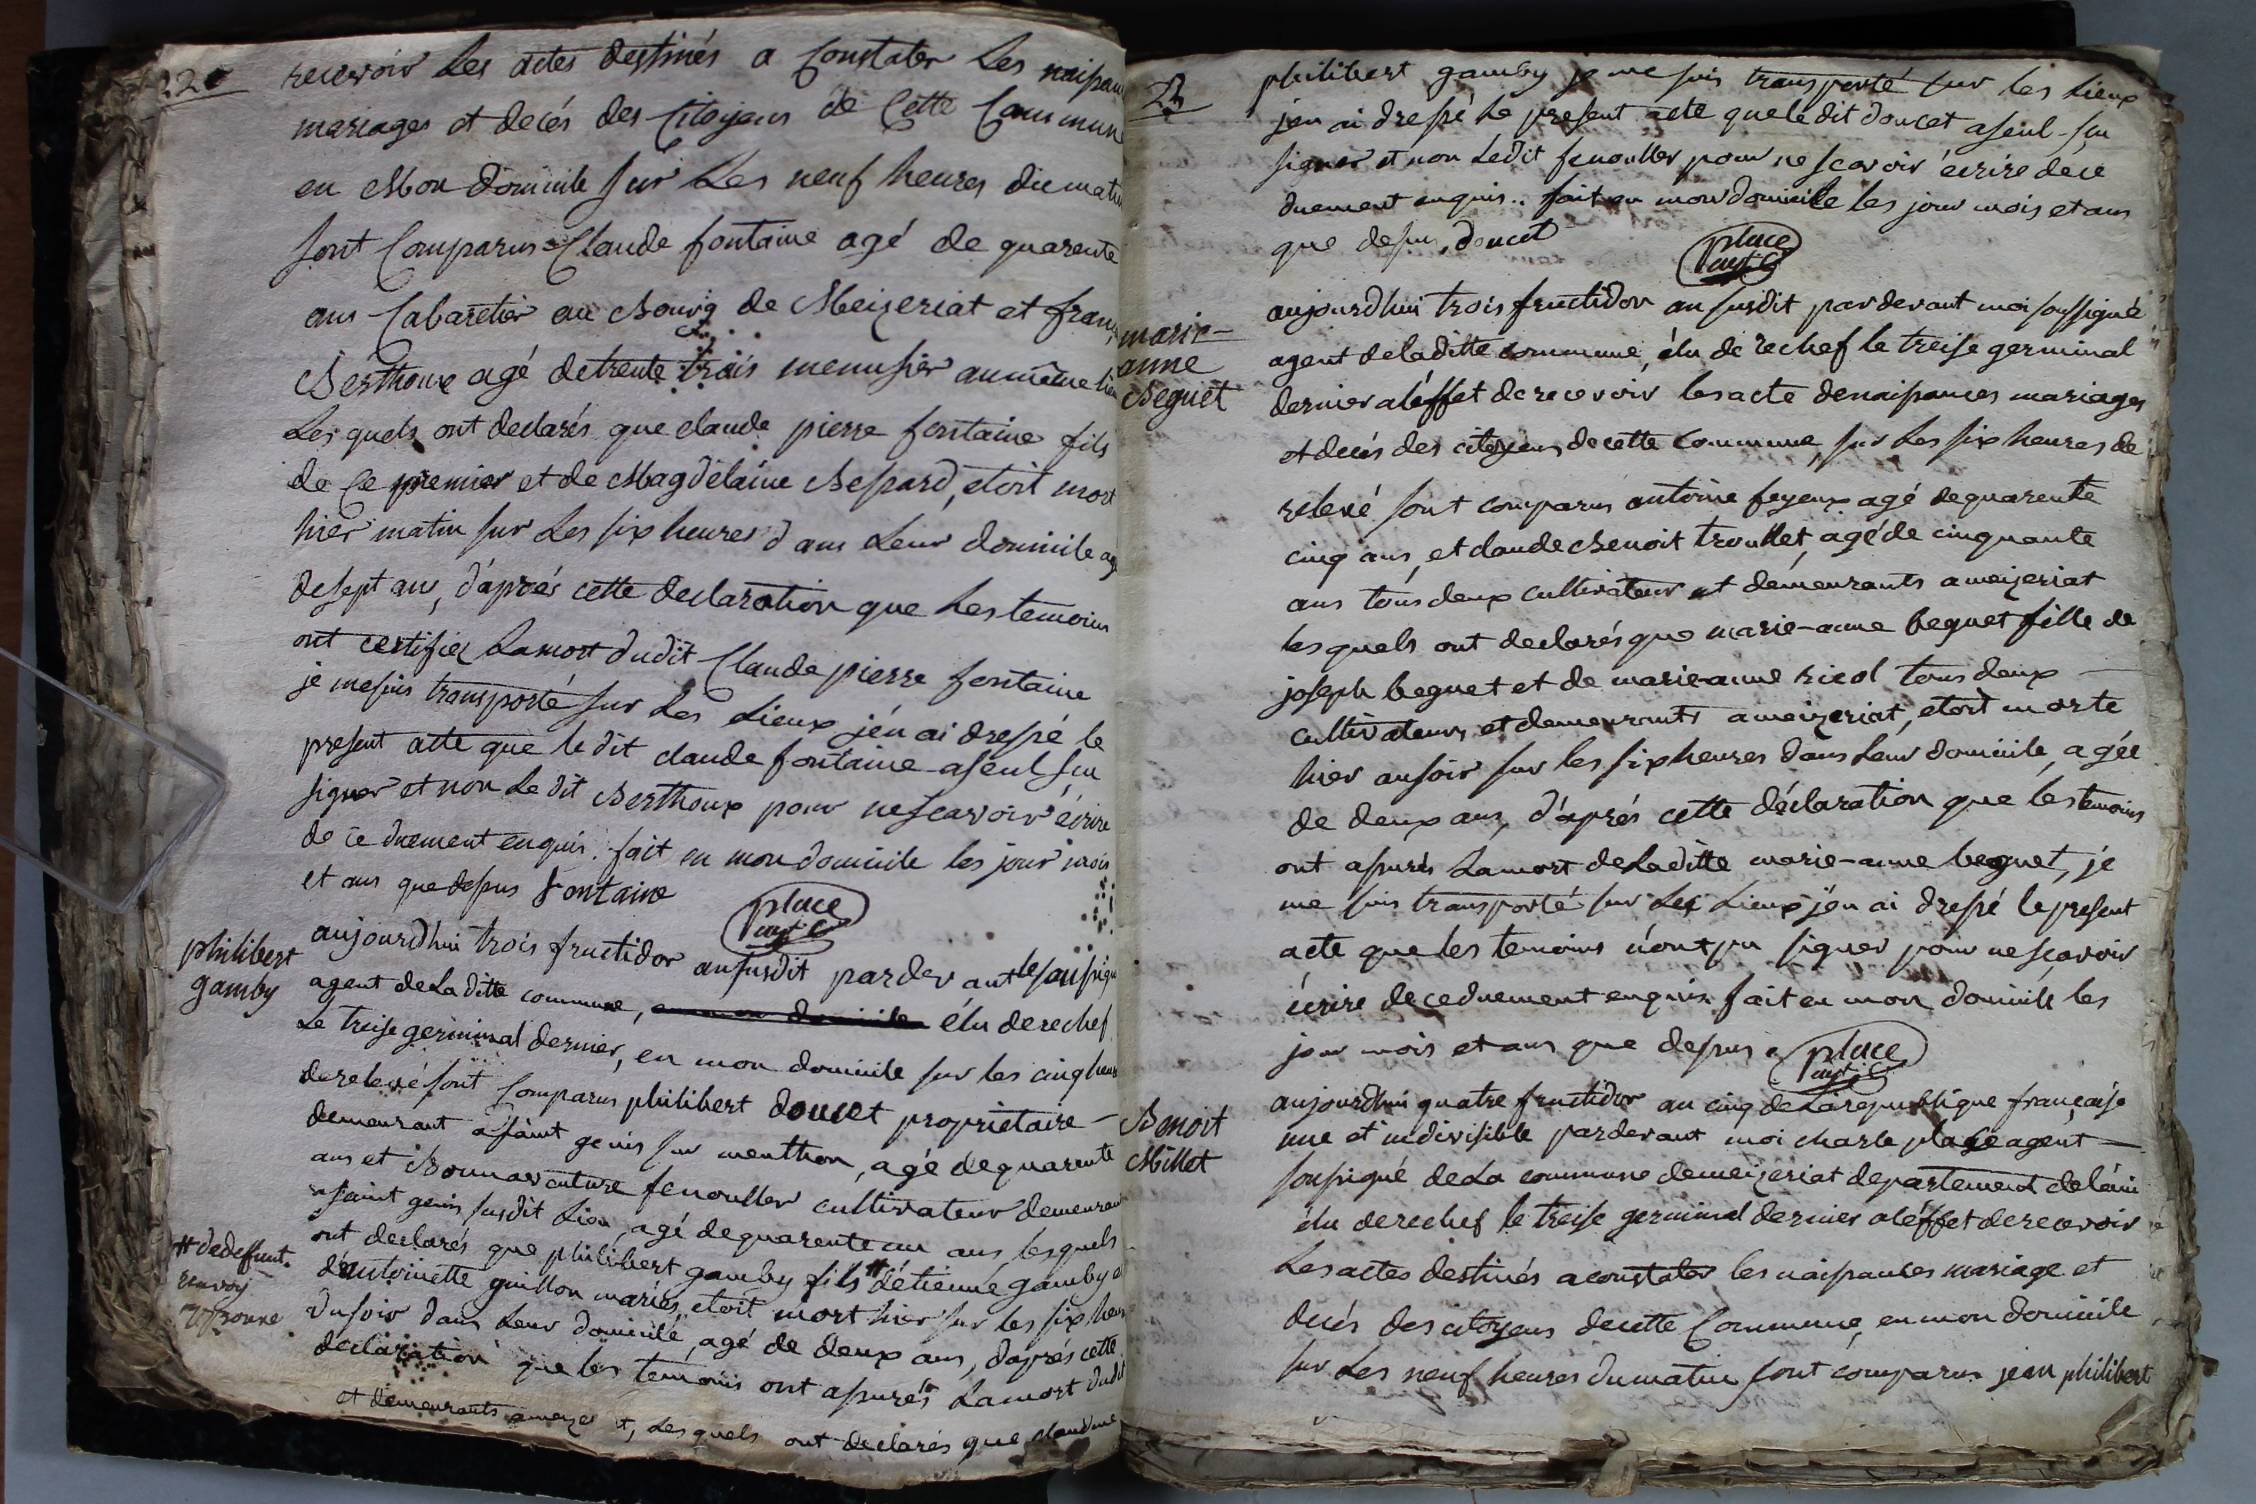 22
recevoir Les actes destinés a Constater Les naissan
mariages et decés des Citoyens de Cette Commune
en Mon domicile sur Les neuf heures du matin
sont Comparus Claude fontaine agé de quarente
ans Cabaretier au Bourg de Meizeriat et fran
Berthoux agé de trente trois menusier au même lieu
Lesquels ont declarés que claude pierre fontaine fils
de Ce premier et de Magdelaine Bessard, etoit mort
hier matin sur Les six heures dans Leur domicile agé
de sept ans, d'aprés cette declaration que Les temoins
ont certifiez La mort dudit Claude pierre fontaine
je me suis transporté sur Les Lieux j'én ai dressé le
present acte que le dit claude fontaine a seul sçu
signer et non Le dit Berthoux pour ne scavoir écrire
de ce duement enquis. fait en mon domicile les jour mois
et ans que dessus fontaine
place
agt C
philibert
gamby
aujourdhui trois fructidor an susdit pardevant le soussigné
agent de La ditte commune, en mon domicile élu derechef
Le treise germinal dernier, en mon domicile sur les cinq heures
de relevé sont Comparus philibert doucet propriétaire
demeurant a saint genis sur menthon, agé de quarente
ans et Bonnaventure fenouller cultivateur demeurant
a saint genis susdit Lieu, agé de quarente un ans, lesquels
ont declarés que philibert gamby fils # d'étienne gamby et
# de deffunt.
renvoy
approuvé
d'antoinette guillon mariés, etoit mort hier sur les six heures
du soir dans Leur domicile, agé de deux ans, d'aprés cette
déclaration que les temoins ont assurés La mort dudit
et demeurants a meyze t, Lesquels ont declarés que claudine
23
philibert gamby je me suis transporté sur les Lieux
jen ai dressé le present acte que le dit doucet a seul sçu
signer et non Ledit fenouller pour ne scavoir écrire de ce
duement enquis.. fait en mon domicile les jour mois et ans
que dessus, doucet
place
agt C
marie-
anne
Beguet
aujourdhui trois fructidor an susdit pardevant moi soussigné
agent de la ditte commune, élu de rechef le treise germinal
dernier a léffet de recevoir les acte de naissances mariages
et decés des citoyens de cette Commune, sur Les six heures de
relevé sont comparus antoine feyeux agé de quarente
cinq ans, et claude Benoit troullet, agé de cinquante
ans tous deux cultivateur et démeurants a meizeriat
lesquels ont declarés que marie-anne beguet fille de
joseph beguet et de marie anne ricol tous deux
cultivateurs et demeurants a meizeriat, etoit morte
hier au soir sur les six heures dans Leur domicile, agée
de deux ans, d'aprés cette déclaration que les temoins
ont assurés La mort de Laditte marie-anne beguet, je
me suis transporté sur Les Lieux j'én ai dressé le present
acte que les temoins n'ont pu signer pour ne scavoir
écrire de ce duement enquis fait en mon domicile les
jour mois et ans que dessus.
place
agt C
Benoit
Millet
aujourdhui quatre fructidor an cinq de La republique française
une et indivisible pardevant moi charle place agent
soussigné de La commune de meizeriat departement de l'ain
élu derechef le treise germinal dernier a léffet de recevoir
Les actes destinés a constater les naissances mariage et
decés des citoyens de cette Commune, en mon domicile
sur Les neuf heures du matin sont comparus jean philibert